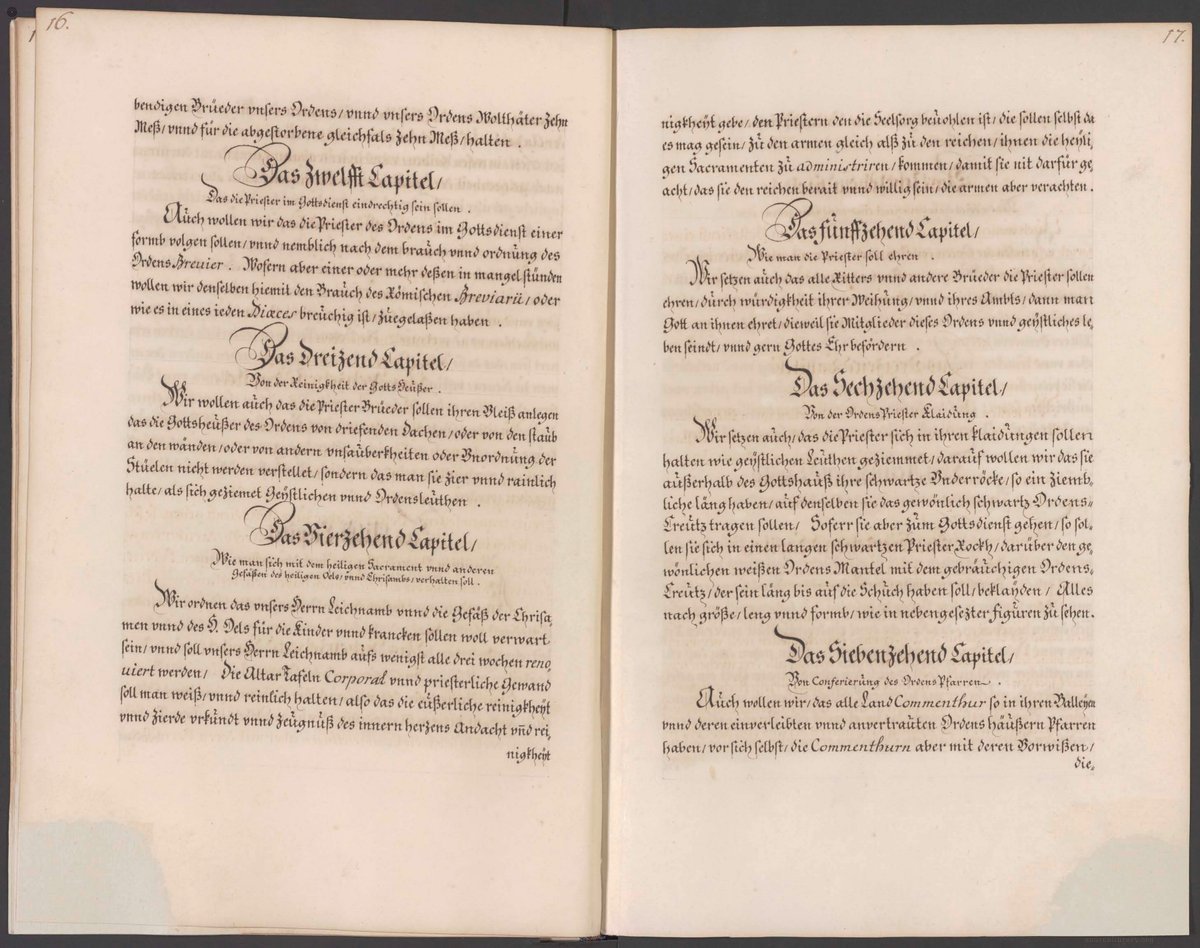 16.
bendigen Brüeder vnsers Ordens/ vnnd vnsers Ordens Wolthäter Zehn
Meß/ vnnd für die abgestorbene gleichfals Zehn Meß/ halten .
Das Zwelfft Capitel/
Das die Priester im Gottsdienst eindrechtig sein sollen .
Auch wollen wir das die Priester des Ordens im Gottsdienst einer
formb volgen sollen/ vnnd nemblich nach dem braüch vnnd ordnüng des
Ordens Breuier . Wofern aber einer oder mehr deßen in mangel stünden
wollen wir denselben hiemit den Braüch des Römischen Breviarii/ oder
wie es in eines ieden Diæces breüchig ist/ züegelaßen haben .
Das Dreizend Capitel/
Von der Reinigkheit der Gotts Heüßer .
Wir wollen aüch das die Priester Brüeder sollen ihren Vleiß anlegen
das die Gottsheüßer des Ordens von driefenden Dachen/ oder von den staüb
an den wänden/ oder von andern vnsaüberkheiten oder Vnordnüng der
Stüelen nicht werden verstellet/ sondern das man sie zier vnnd rainlich
halte/ als sich geziemet Geÿstlichen vnnd Ordensleüthen .
Das Vierzehend Capitel/
Wie man sich mit dem heiligen Sacrament vnnd anderen
Gefäßen des heiligen Oels/ vnnd Chrisambs/ verhalten soll .
Wir ordnen das vnsers Herrn Leichnamb vnnd die Gefäß der Chrisa,
men vnnd des H. Oels für die Kinder vnnd krancken sollen woll verwart
sein/ vnnd soll vnsers Herrn Leichnamb aüfs wenigst alle drei wochen reno
uiert werden/ Die Altar Tafeln Corporal vnnd priesterliche Gewand
soll man weiß/ vnnd reinlich halten/ also das die eüßerliche reinigkheÿt
vnnd Zierde vrkündt vnnd Zeügnüß des innern herzens Andacht vn̄d rei,
nigkheÿt
17.
nigkheÿt gebe/ den Priestern den die Seelsorg beüohlen ist/ die sollen selbst da
es mag gesein/ zü den armen gleich alß zü den reichen/ ihnen die heÿli,
gen Sacramenten zü administriren/ kommen/ damit sie nit darfür ge,
acht/ das sie den reichen berait vnnd willig sein/ die armen aber verachten .
Das fünffzehend Capitel/
Wie man die Priester soll ehren .
Wir setzen aüch das alle Ritters vnnd andere Brüeder die Priester sollen
ehren/ dürch würdigkheit ihrer Weihüng/ vnnd ihres Ambts/ dann man
Gott an ihnen ehret/ dieweil sie Mitglieder dieses Ordens vnnd geÿstliches le,
ben seindt/ vnnd gern Gottes Ehr befördern .
Das Sechzehend Capitel/
Von der Ordens Priester Klaidüng .
Wir setzen aüch/ das die Priester sich in ihren klaidüngen sollen
halten wie geÿstlichen Leüthen geziemmet/ daraüf wollen wir das sie
aüßerhalb des Gottshaüß ihre schwartze Vnderröcke/ so ein ziemb,
liche läng haben/ aüf denselben sie das gewönlich schwartz Ordens=
Creütz tragen sollen/ Soferr sie aber züm Gottsdienst gehen/ so sol,
len sie sich in einen langen schwartzen Priester Rockh/ darüber den ge,
wönlichen weißen Ordens Mantel mit dem gebräüchigen Ordens=
Creütz/ der sein läng bis aüf die Schüch haben soll/ beklaÿden/ Alles
nach größe/ leng vnnd formb/ wie in nebengesezter figüren zü sehen.
Das Siebenzehend Capitel/
Von Conferierüng des Ordens Pfarren .
Aüch wollen wir/ das alle Land Commenthur so in ihren Balleÿen
vnnd deren einverleibten vnnd anvertraüten Ordens häüßern Pfarren
haben/ vor sich selbst/ die Commenthurn aber mit deren Vorwißen/
die,